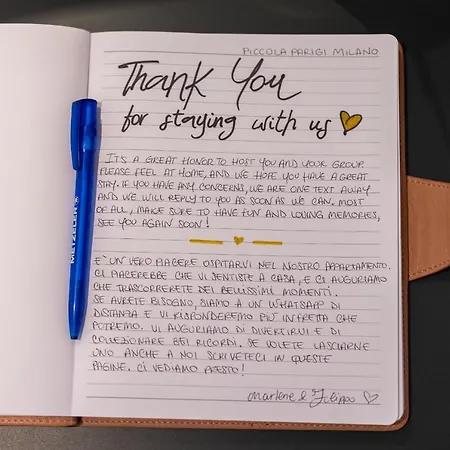 PICCOLA PARIGI MILANO
Thank You
for staying with us
IT'S A GREAT HONOR TO HOST YOU AND YOUR GROUP.
PLEASE FEEL AT HOME, AND WE HOPE YOU HAVE A GREAT
STAY. IF YOU HAVE ANY CONCERNS, WE ARE ONE TEXT AWAY
AND WE WILL REPLY TO YOU AS SOON AS WE CAN. MOST
OF ALL, MAKE SURE TO HAVE FUN AND LOVING MEMORIES,
SEE YOU AGAIN SOON!
E' UN VERO PIACERE OSPITARVI NEL NOSTRO APPARTAMENTO.
CI PIACEREBBE CHE VI SENTISTE A CASA, E CI AUGURIAMO
CHE TRASCORRERETE DEI BELLISSIMI MOMENTI.
SE AVRETE BISOGNO, SIAMO A UN WHATSAPP DI
DISTANZA E VI RISPONDEREMO PIÙ IN FRETTA CHE
POTREMO. VI AUGURIAMO DI DIVERTIRVI E DI
COLLEZIONARE BEI RICORDI. SE VOLETE LASCIARNE
UNO ANCHE A NOI SCRIVETECI IN QUESTE
PAGINE. CI VEDIAMO PRESTO!
Marlene e Filippo
METZELER